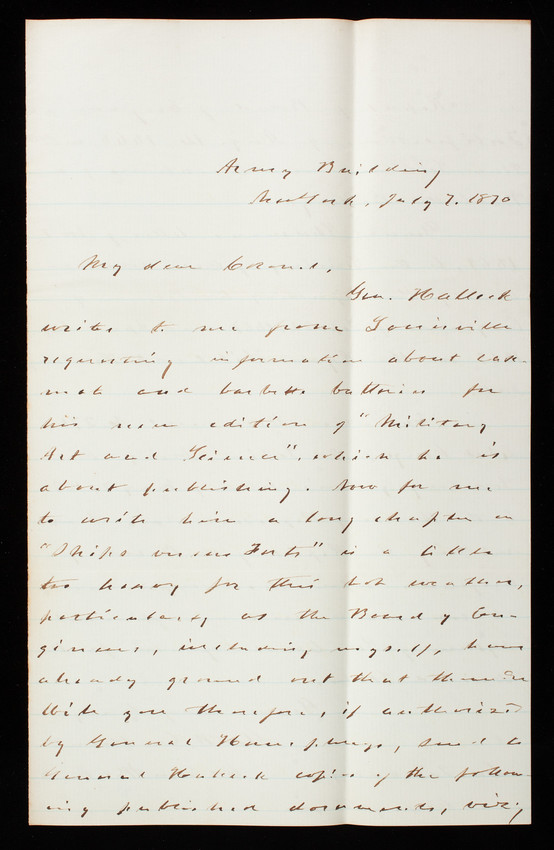 Army Building
New York, July 7. 1870
My dear Colonel,
Gen. Halleck
writes to me from Louisville
requesting information about case-
mate and barbette batteries for
his new edition of "Military
Art and Science", which he is
about publishing. Now for me
to write him a long chapter on
"Ships versus Forts" is a little
too heavy for this hot weather,
particularly as the Board of En-
gineers, including myself, have
already ground out that
Will you therefore, if authorized
by General Humphreys, send to
General Halleck copies of the follow-
ing published documents, viz;